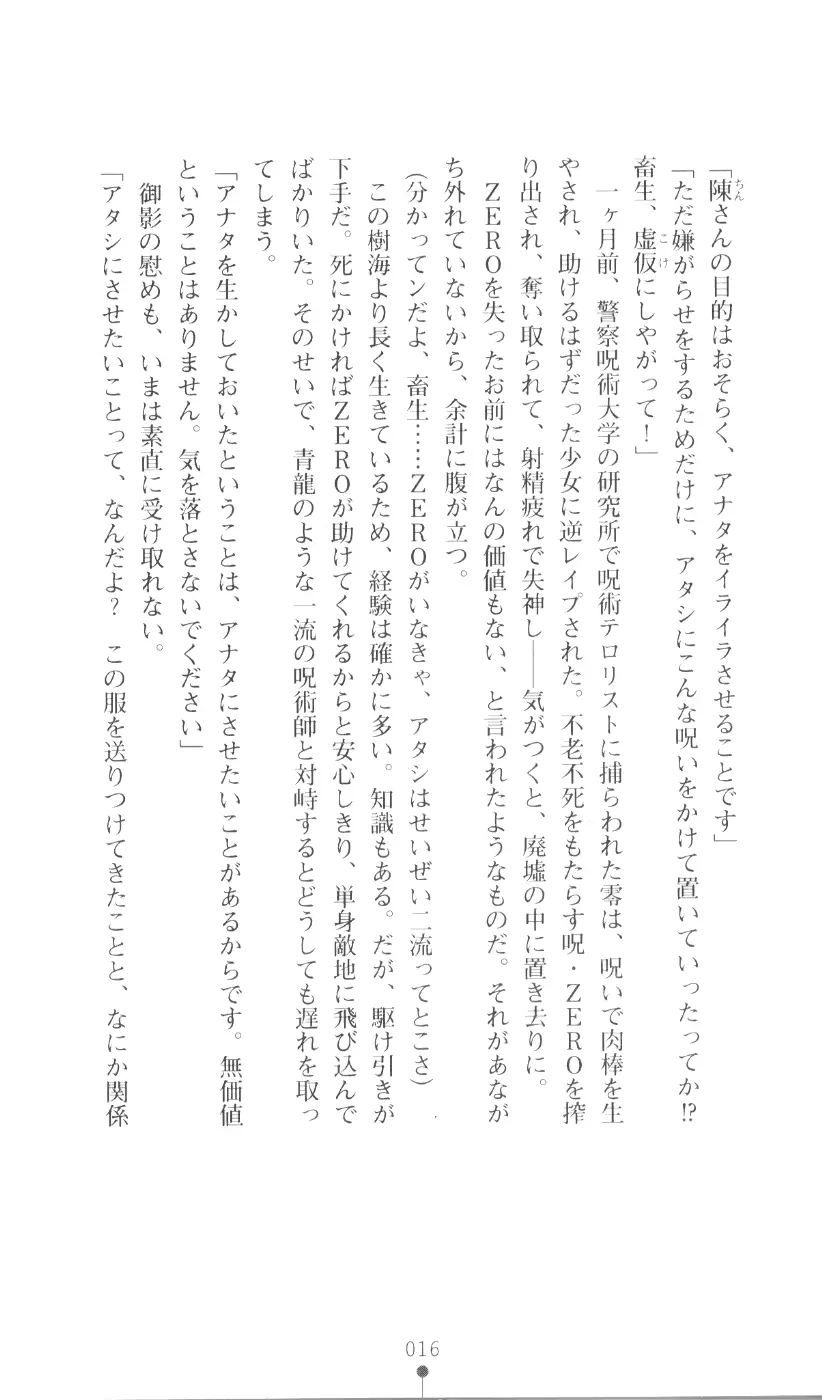 「陳さんの目的はおそらく、アナタをイライラさせることです」
「ただ嫌がらせをするためだけに、アタシにこんな呪いをかけて置いていったってか!?
畜生、虚仮にしやがって！」
一ヶ月前、警察呪術大学の研究所で呪術テロリストに捕らわれた零は、呪いで肉棒を生
やされ、助けるはずだった少女に逆レイプされた。不老不死をもたらす呪・ＺＥＲＯを搾
り出され、奪い取られて、射精疲れで失神し――気がつくと、廃墟の中に置き去りに。
ＺＥＲＯを失ったお前にはなんの価値もない、と言われたようなものだ。それがあなが
ち外れていないから、余計に腹が立つ。
（分かってンだよ、畜生……ＺＥＲＯがいなきゃ、アタシはせいぜい二流ってとこさ）
この樹海より長く生きているため、経験は確かに多い。知識もある。だが、駆け引きが
下手だ。死にかければＺＥＲＯが助けてくれるからと安心しきり、単身敵地に飛び込んで
ばかりいた。そのせいで、青龍のような一流の呪術師と対峙するとどうしても遅れを取っ
てしまう。
「アナタを生かしておいたということは、アナタにさせたいことがあるからです。無価値
ということはありません。気を落とさないでください」
御影の慰めも、いまは素直に受け取れない。
「アタシにさせたいことって、なんだよ？　この服を送りつけてきたことと、なにか関係
016